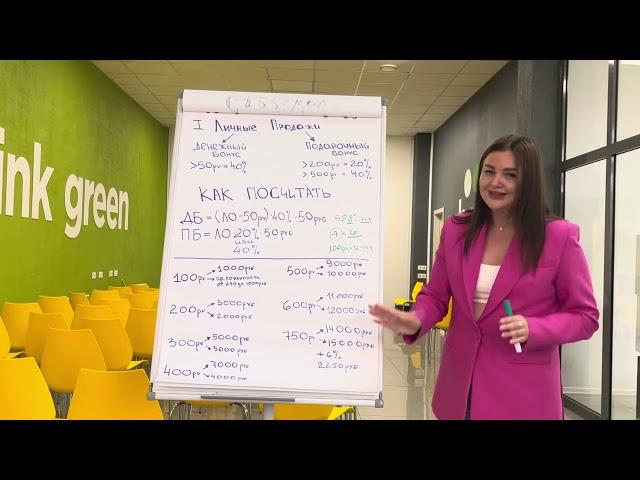 ink green
I Личные Продажи
Денежный бонус
>50pv = 40%
Подарочный бонус
>200pv = 20%
>500pv = 40%
КАК ПОСЧИТАТЬ
ДБ = (ЛО - 50pv) · 40% · 50 руб
ПБ = ЛО 20% · 50 руб
или
40%
100pv
1000 руб
200pv
3000 руб
2000 руб
300pv
5000 руб
3000 руб
400pv
7000 руб
4000 руб
500pv
9000 руб
10000 руб
600pv
11000 руб
12000 руб
750pv
14000 руб
15000 руб
+6%
2250 руб